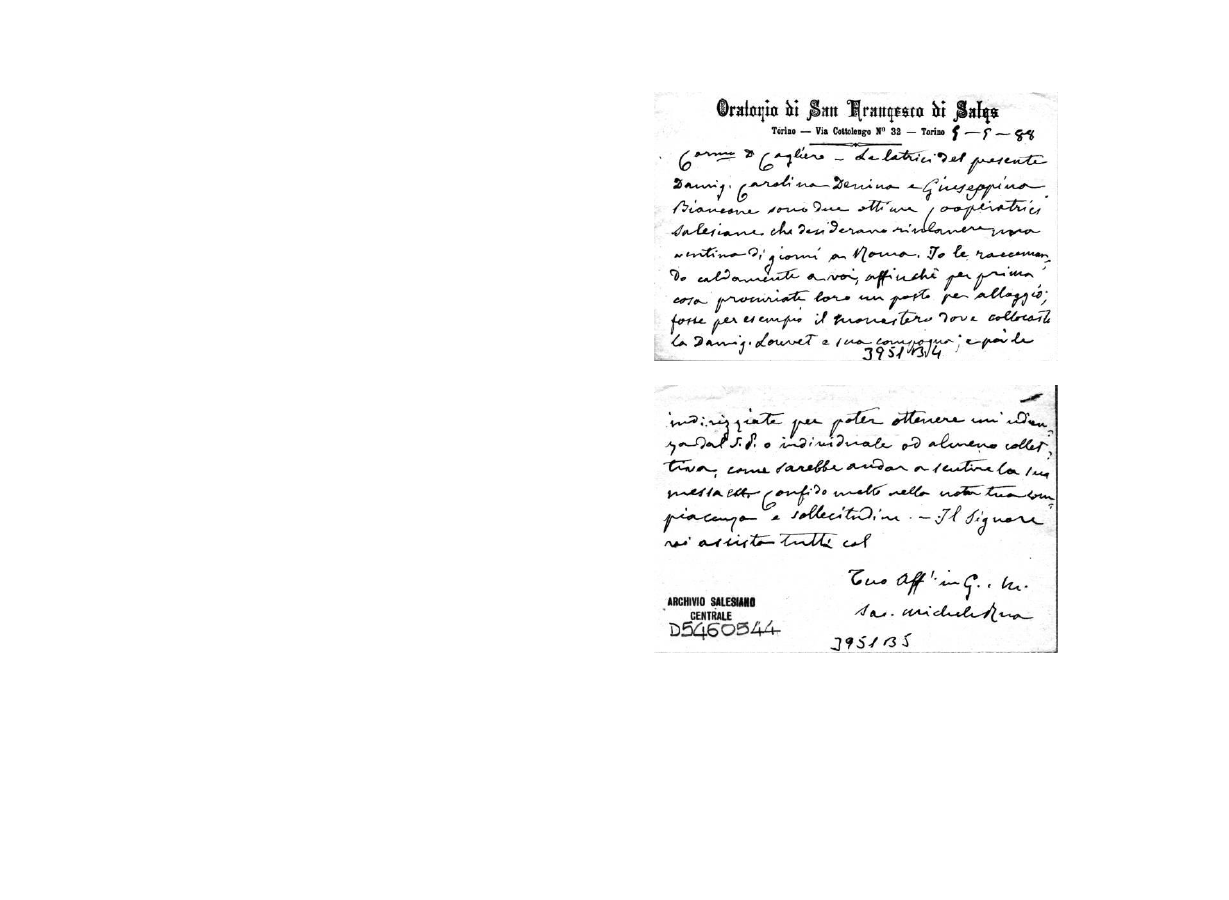 Oratorio di San Francesco di Sales
Torino — Via Cottolengo Nº 32 — Torino 5 – 5 – 88
Carmo D Cagliero – Le latrici del presente
Damig. Carolina Denina e Giuseppina
Biancone sono due ottime Cooperatrici
Salesiane che desiderano rimanere una
ventina di giorni a Roma. Io le raccoman
do caldamente a voi, affinchè per prima
cosa procuriate loro un posto per alloggio;
fosse per esempio il monastero dove collocaste
la Damig. Louvet e sua compagna; e poi le
3951B4
indirizziate per poter ottenere un'udien
za dal S.P. o individuale od almeno collet
tiva, come sarebbe andar a sentire la sua
messa Confido molto nella nota tua com
piacenza e sollecitudine. – Il Signore
vi assista tutti col
Tuo Aff' in G. . M.
Sac. Michele Rua
ARCHIVIO SALESIANO
CENTRALE
D5460544
3951B5